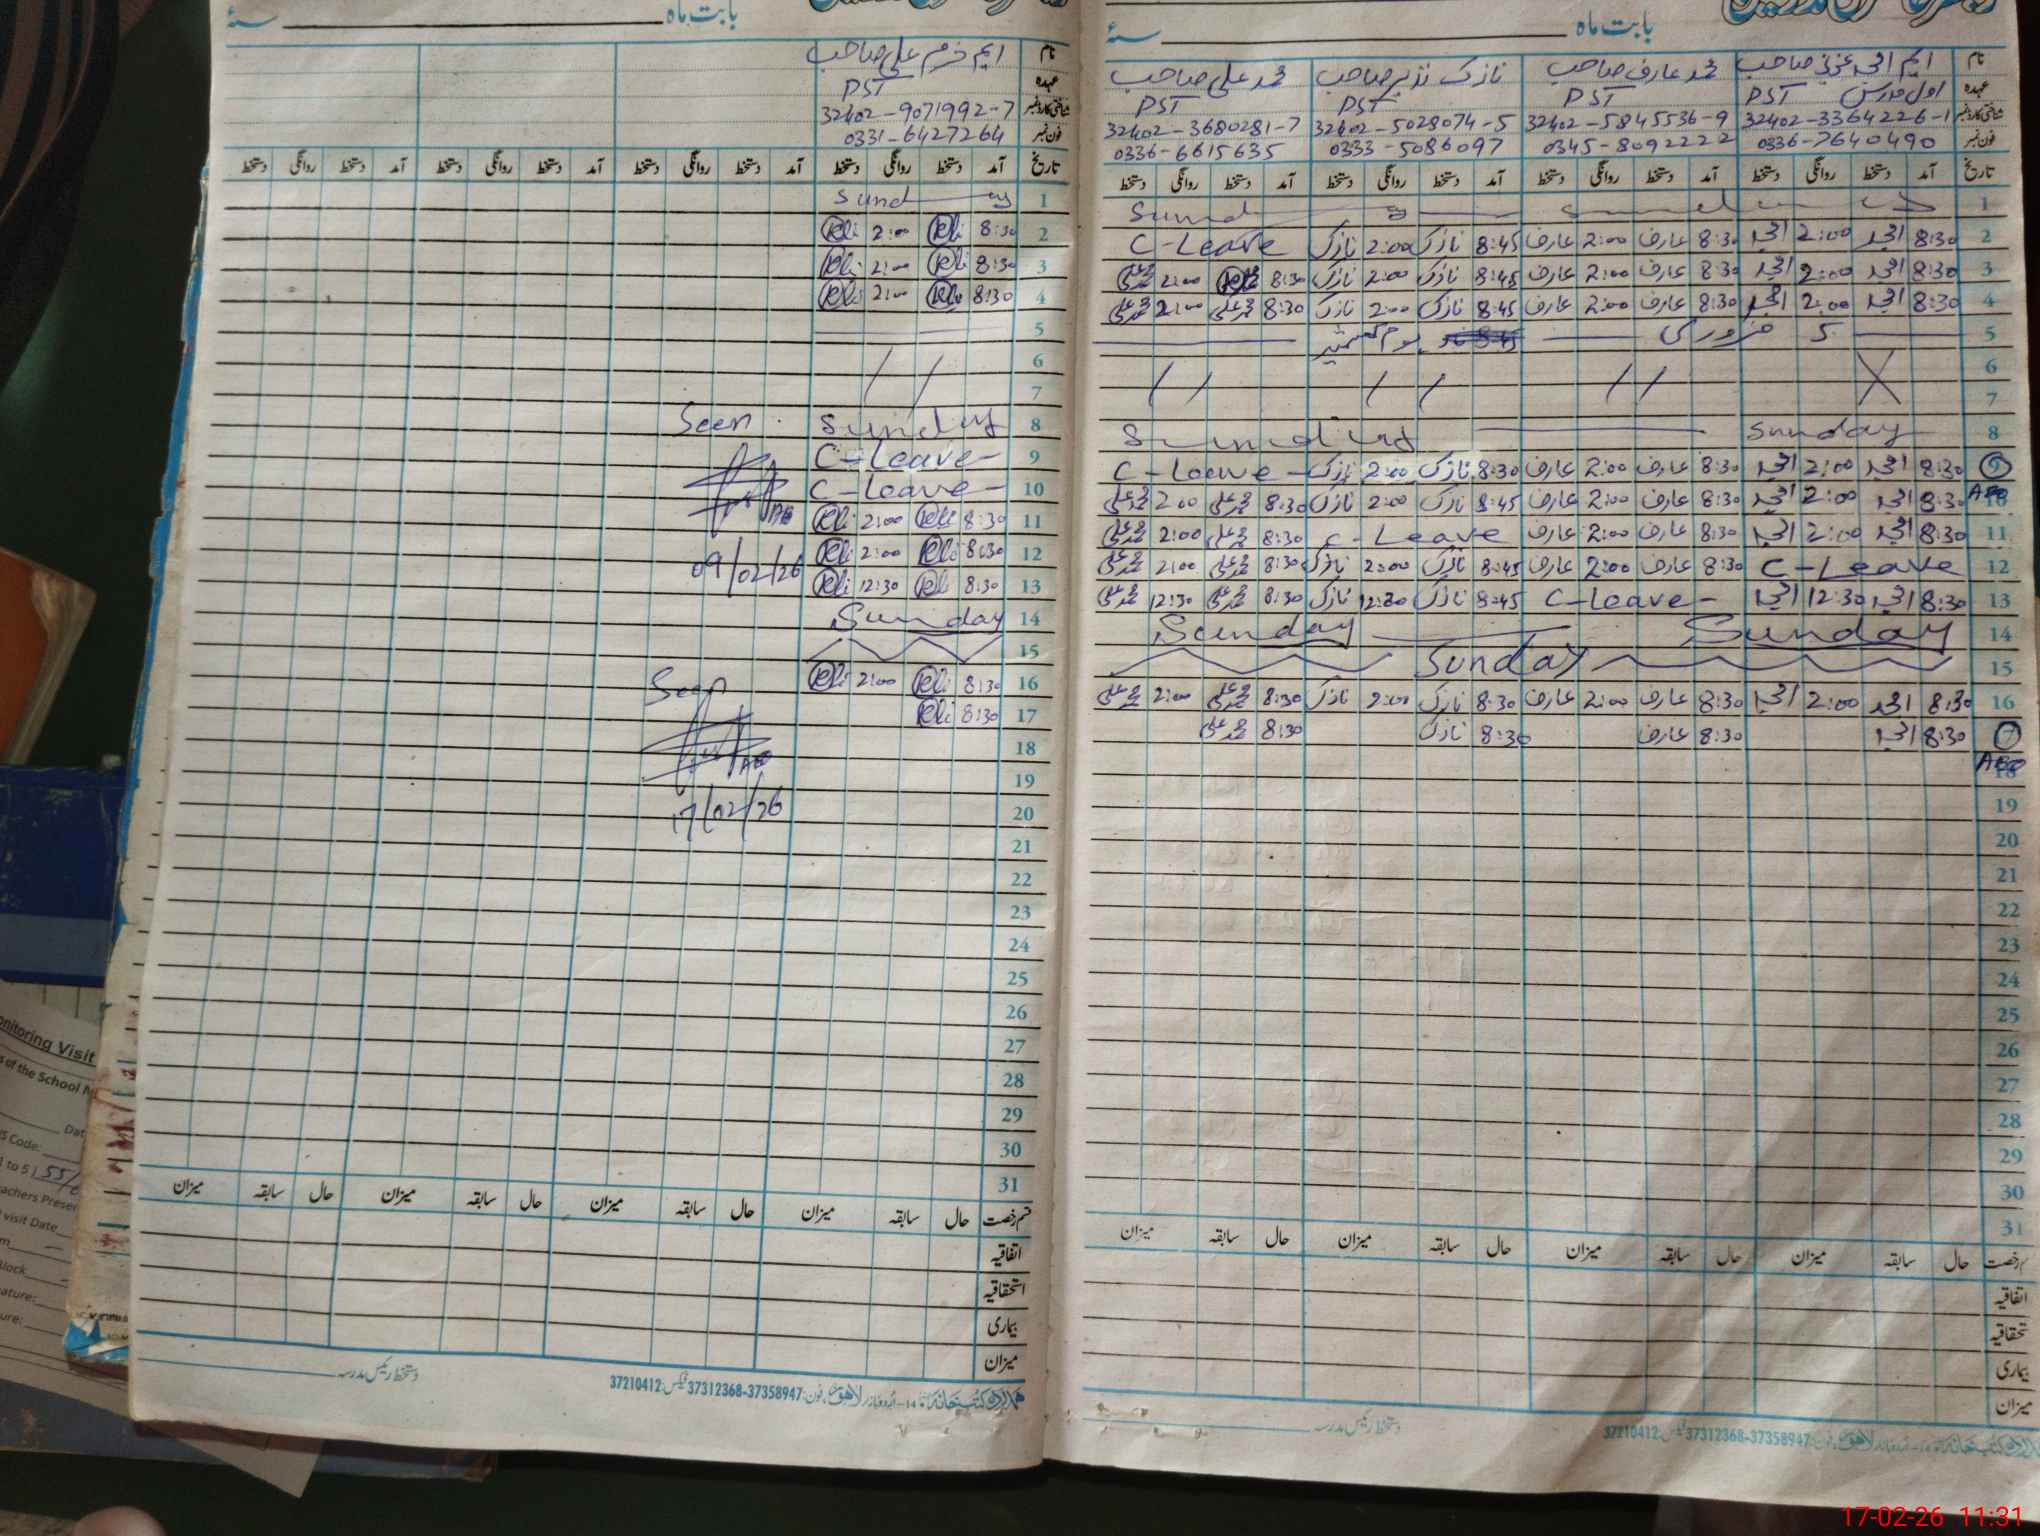 بابت ماہ
سنہ
نام ایم امجد عزیز صاحب محمد عارف صاحب نازک نذیر صاحب محمد علی صاحب
عہدہ اول مدرس PST PST PST PST
شناختی کارڈ نمبر 32402-3364226-1 32402-5845536-9 32402-5028074-5 32402-3680281-7
فون نمبر 0336-7640490 0345-8092222 0333-5086097 0336-6615635
تاریخ آمد دستخط روانگی دستخط آمد دستخط روانگی دستخط آمد دستخط روانگی دستخط آمد دستخط روانگی دستخط
1 Sunday
2 8:30 امجد 2:00 امجد 8:30 عارف 2:00 عارف 8:45 نازک 2:00 نازک C-Leave
3 8:30 امجد 2:00 امجد 8:30 عارف 2:00 عارف 8:45 نازک 2:00 نازک 8:30 2:00 محمد علی
4 8:30 امجد 2:00 امجد 8:30 عارف 2:00 عارف 8:45 نازک 2:00 نازک 8:30 محمد علی 2:00 محمد علی
5 5 فروری یوم کشمیر
6
7
8 Sunday Sunday
9 8:30 امجد 2:00 امجد 8:30 عارف 2:00 عارف 8:30 نازک 2:00 نازک C-Leave-
10 AEO 8:30 امجد 2:00 امجد 8:30 عارف 2:00 عارف 8:45 نازک 2:00 نازک 8:30 محمد علی 2:00 محمد علی
11 8:30 امجد 2:00 امجد 8:30 عارف 2:00 عارف C-Leave 8:30 محمد علی 2:00 محمد علی
12 C-Leave 8:30 عارف 2:00 عارف 8:45 نازک 2:00 نازک 8:30 محمد علی 2:00 محمد علی
13 8:30 امجد 12:30 امجد C-Leave- 8:45 نازک 12:30 نازک 8:30 محمد علی 12:30 محمد علی
14 Sunday Sunday
15 Sunday
16 8:30 امجد 2:00 امجد 8:30 عارف 2:00 عارف 8:30 نازک 2:00 نازک 8:30 محمد علی 2:00 محمد علی
17 8:30 امجد 8:30 عارف 8:30 نازک 8:30 محمد علی
18 AEO
19
20
21
22
23
24
25
26
27
28
29
30
31
رخصت حال سابقہ میزان حال سابقہ میزان حال سابقہ میزان حال سابقہ میزان
اتفاقیہ
تحقاقیہ
بیماری
میزان
دستخط رئیس مدرسہ
37210412 فیکس: 37312368-37358947 فون:
بابت ماہ
سنہ
نام ایم خرم علی صاحب
عہدہ PST
شناختی کارڈ نمبر 32402-9071992-7
فون نمبر 0331-6427264
تاریخ آمد دستخط روانگی دستخط آمد دستخط روانگی دستخط آمد دستخط روانگی دستخط آمد دستخط روانگی دستخط
1 Sunday
2 8:30 2:00
3 8:30 2:00
4 8:30 2:00
5
6
7
8 Sunday Seen
9 C-Leave-
10 C-Leave- AEO
11 8:30 2:00
12 8:30 2:00 09/02/26
13 8:30 12:30
14 Sunday
15
16 8:30 2:00 Seen
17 8:30
18 AEO
19
20 17/02/26
21
22
23
24
25
26
27
28
29
30
31
قسم رخصت حال سابقہ میزان حال سابقہ میزان حال سابقہ میزان حال سابقہ میزان
اتفاقیہ
استحقاقیہ
بیماری
میزان
دستخط رئیس مدرسہ
37210412 فیکس: 37312368-37358947 فون: لاہور
onitoring Visit
s of the School
Dat
S Code:
1 to 5) 55/
achers Presen
visit Date
lock
ature:
ure:
17-02-26 11:31